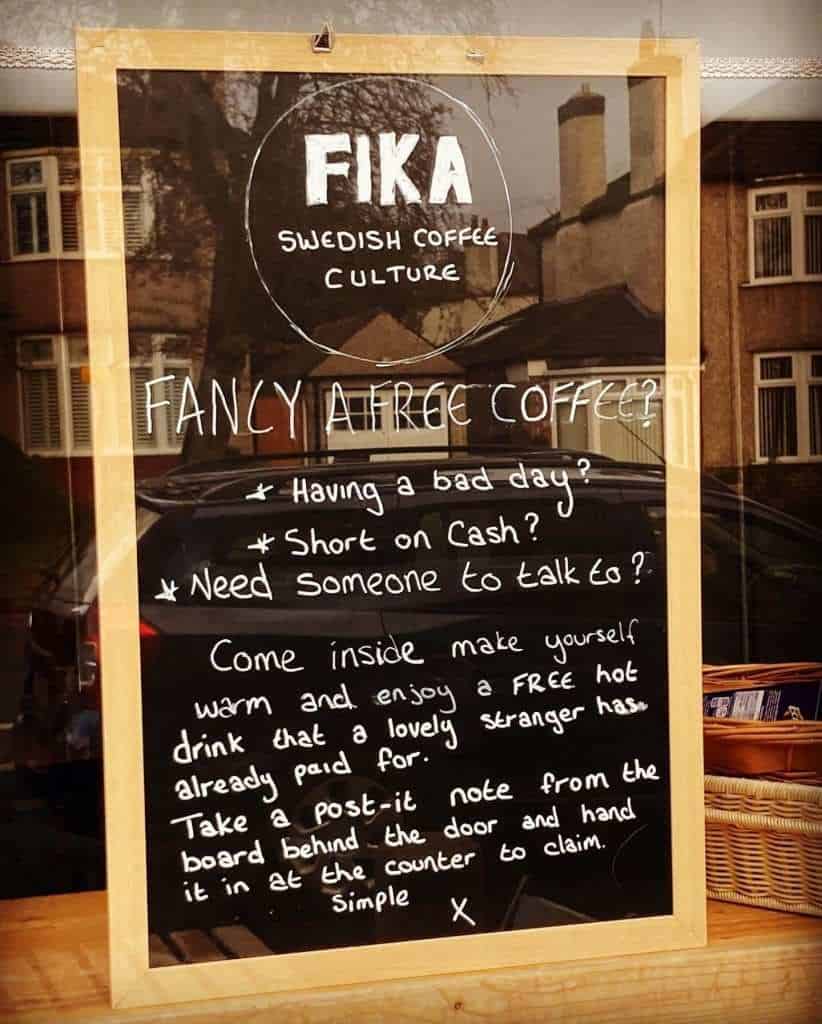 FIKA
SWEDISH COFFEE
CULTURE
FANCY A FREE COFFEE?
* Having a bad day?
* Short on Cash?
* Need someone to talk to?
Come inside make yourself
warm and enjoy a FREE hot
drink that a lovely stranger has
already paid for.
Take a post-it note from the
board behind the door and hand
it in at the counter to claim.
Simple X